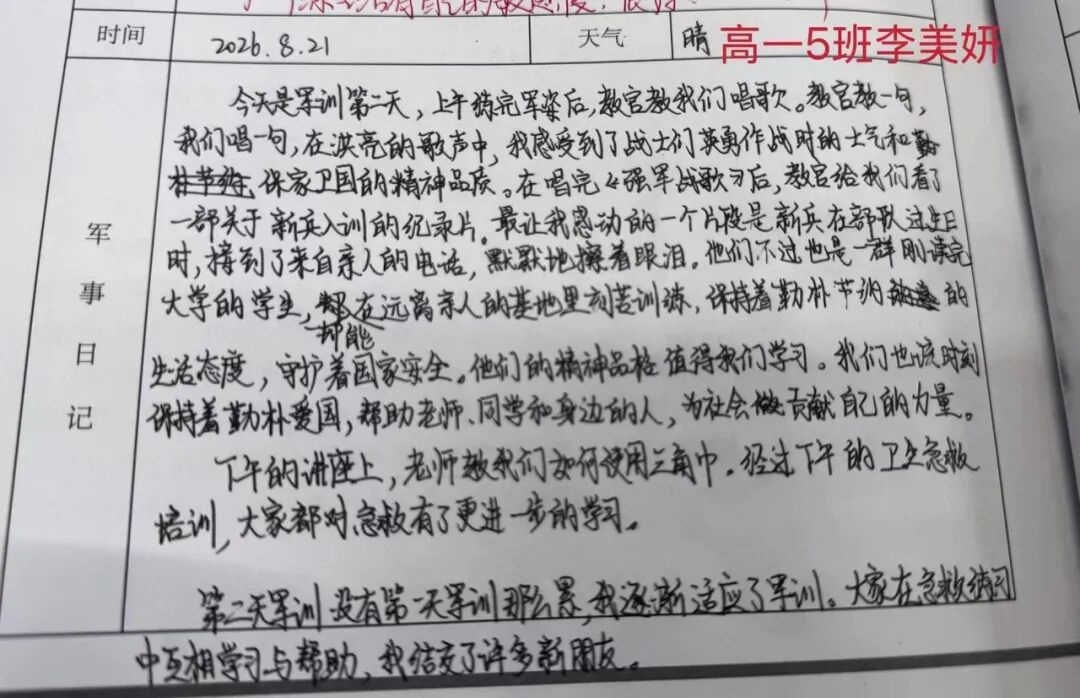 时间 2026.8.21 天气 晴 高一5班李美妍
军事日记
今天是军训第二天，上午练完军姿后，教官教我们唱歌。教官教一句，
我们唱一句，在洪亮的歌声中，我感受到了战士们英勇作战时的士气和
保家卫国的精神品质。在唱完《强军战歌》后，教官给我们看了
一部关于新兵入训的纪录片。最让我感动的一个片段是新兵在部队过生日
时，接到了来自亲人的电话，默默地擦着眼泪。他们不过也是一群刚读完
大学的学生，却能在远离亲人的基地里刻苦训练、保持着勤朴节约的
生活态度，守护着国家安全。他们的精神品格值得我们学习。我们也该时刻
保持着勤朴爱国，帮助老师、同学和身边的人，为社会贡献自己的力量。
下午的讲座上，老师教我们如何使用三角巾。经过下午的卫生急救
培训，大家都对急救有了更进一步的学习。
第二天军训没有第一天军训那么累，我逐渐适应了军训。大家在急救练习
中互相学习与帮助，我结交了许多新朋友。